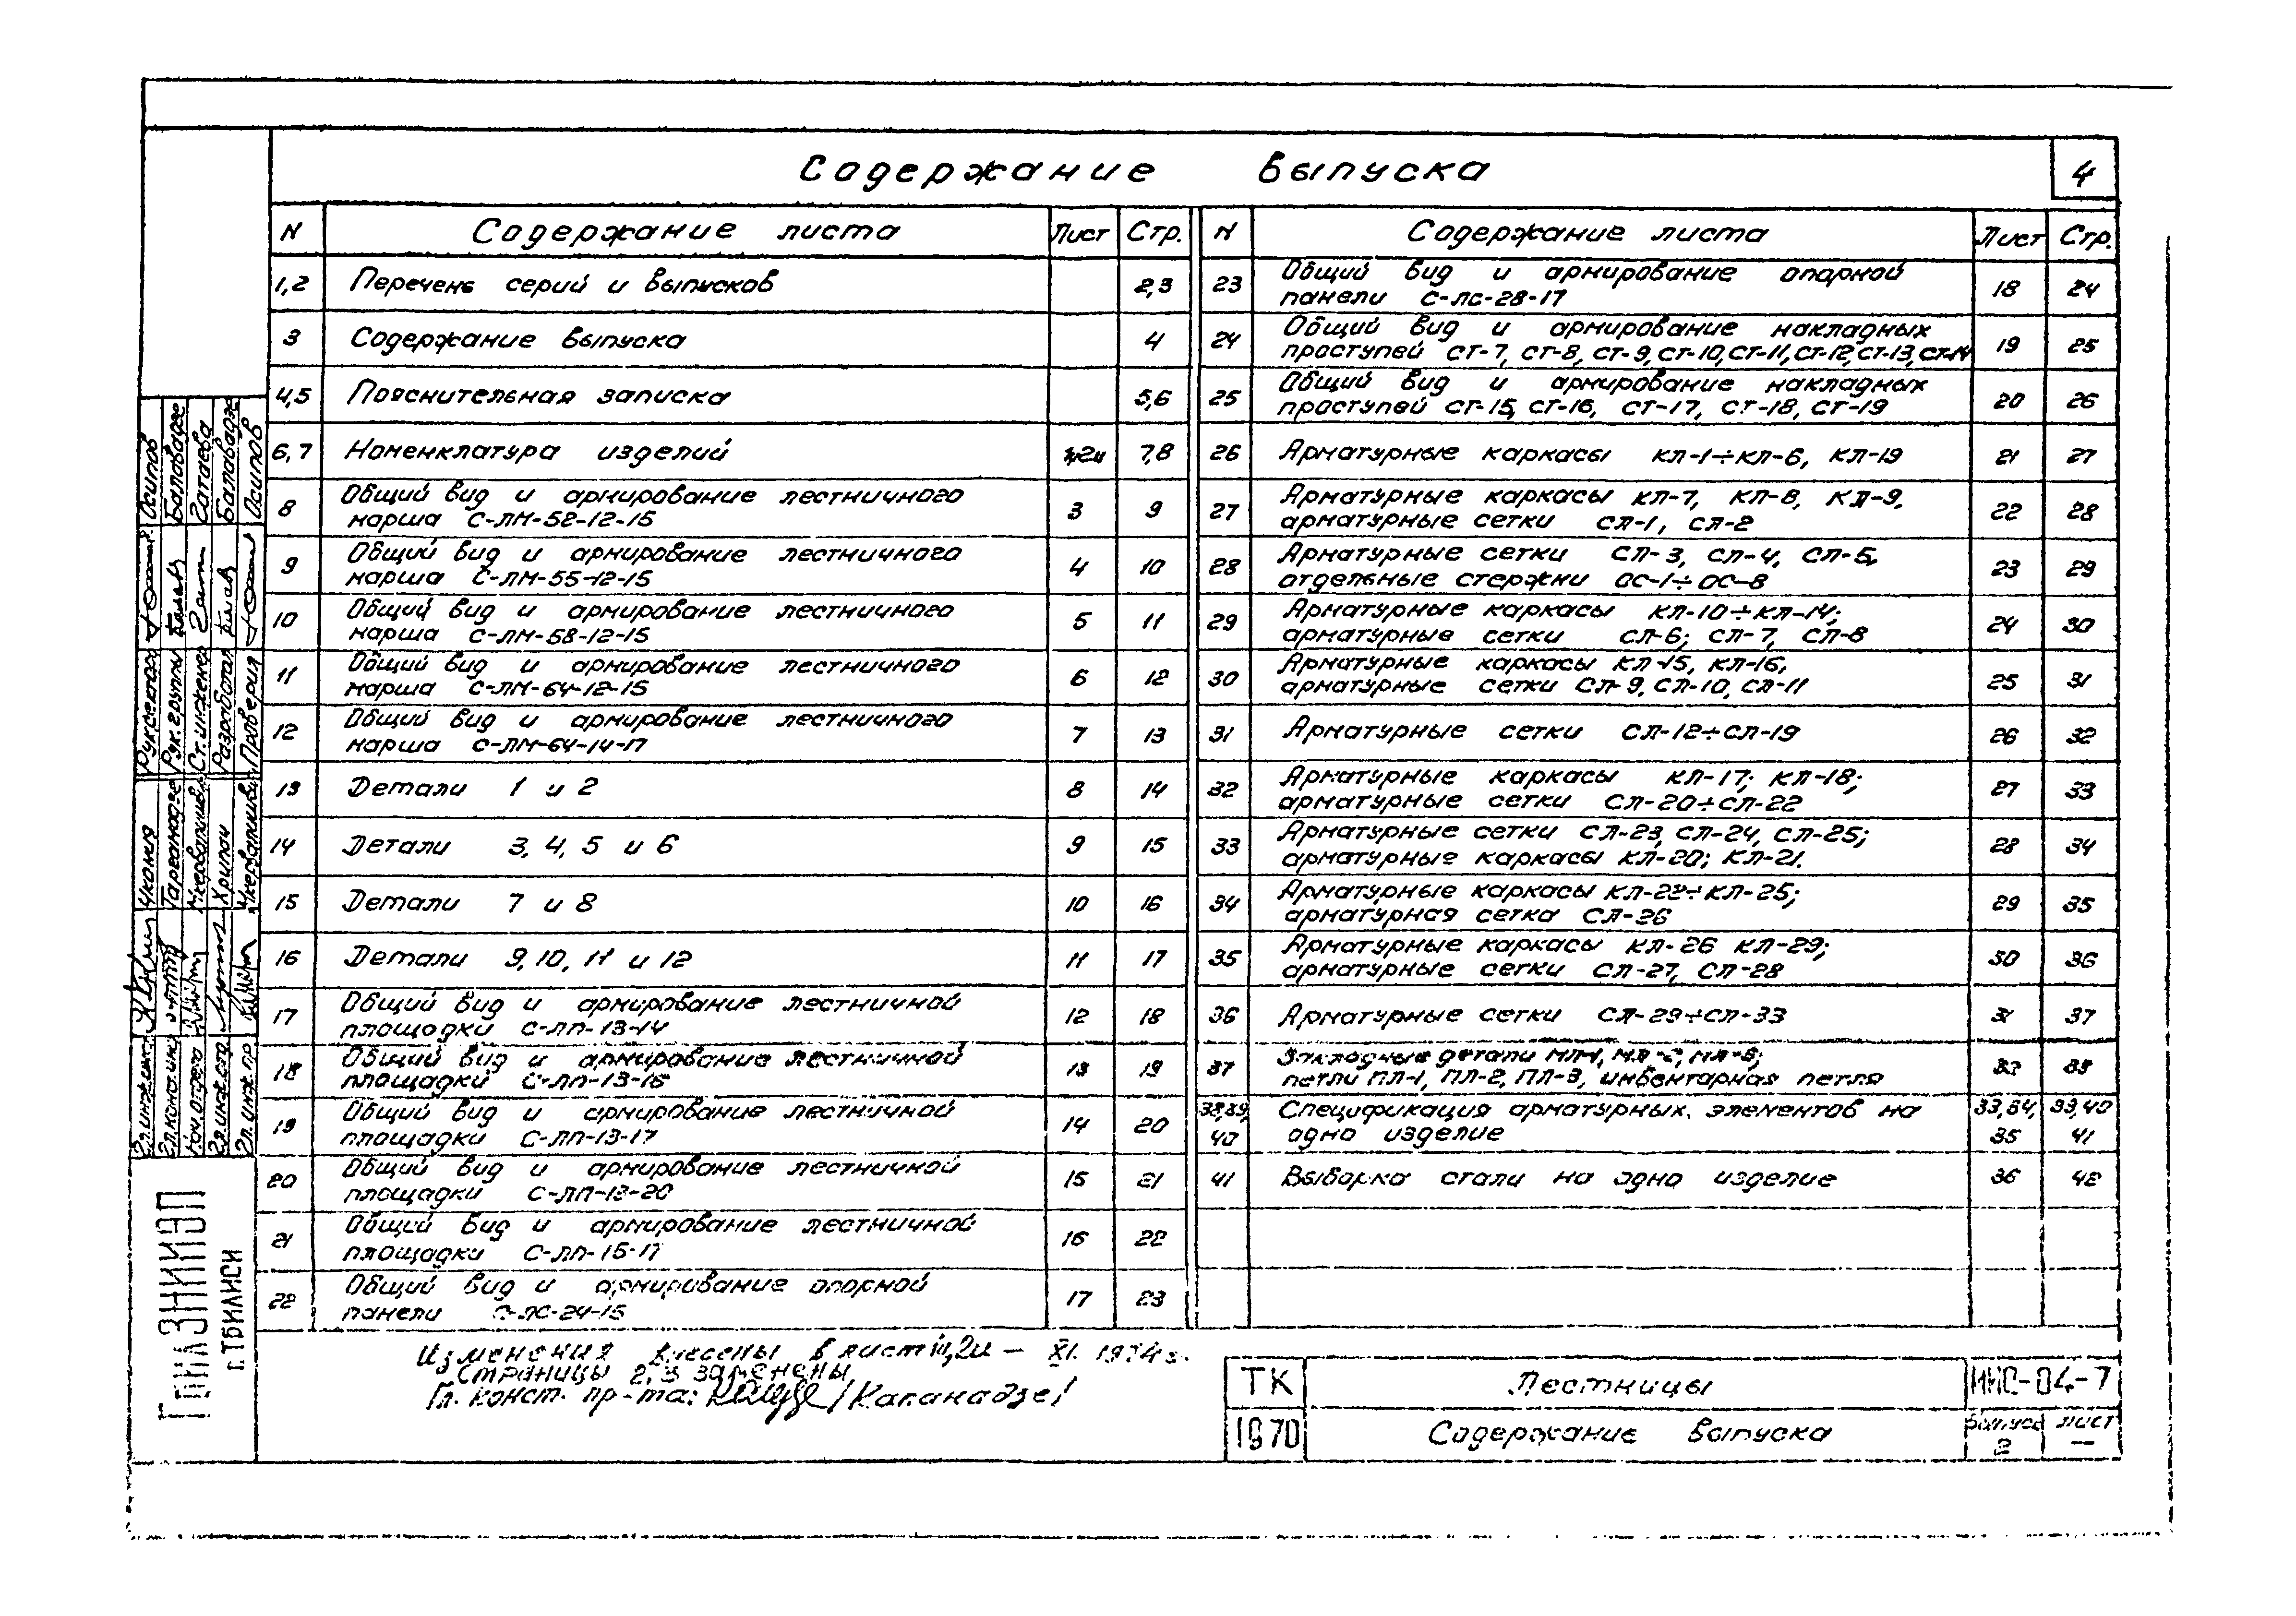 Содержание выпуска
4
N Содержание листа Лист Стр.
1,2 Перечень серий и выпусков 2,3
3 Содержание выпуска 4
4,5 Пояснительная записка 5,6
6,7 Номенклатура изделий 7,8
8 Общий вид и армирование лестничного
марша С-ЛМ-52-12-15 3 9
9 Общий вид и армирование лестничного
марша С-ЛМ-55-12-15 4 10
10 Общий вид и армирование лестничного
марша С-ЛМ-58-12-15 5 11
11 Общий вид и армирование лестничного
марша С-ЛМ-64-12-15 6 12
12 Общий вид и армирование лестничного
марша С-ЛМ-64-14-17 7 13
13 Детали 1 и 2 8 14
14 Детали 3, 4, 5 и 6 9 15
15 Детали 7 и 8 10 16
16 Детали 9, 10, 11 и 12 11 17
17 Общий вид и армирование лестничной
площадки С-ЛП-13-14 12 18
18 Общий вид и армирование лестничной
площадки С-ЛП-13-15 13 19
19 Общий вид и армирование лестничной
площадки С-ЛП-13-17 14 20
20 Общий вид и армирование лестничной
площадки С-ЛП-13-20 15 21
21 Общий вид и армирование лестничной
площадки С-ЛП-15-17 16 22
22 Общий вид и армирование опорной
панели С-ЛС-24-15 17 23
N Содержание листа Лист Стр.
23 Общий вид и армирование опорной
панели С-ЛС-28-17 18 24
24 Общий вид и армирование накладных
проступей СТ-7, СТ-8, СТ-9, СТ-10, СТ-11, СТ-12, СТ-13, СТ-14 19 25
25 Общий вид и армирование накладных
проступей СТ-15, СТ-16, СТ-17, СТ-18, СТ-19 20 26
26 Арматурные каркасы КЛ-1÷КЛ-6, КЛ-19 21 27
27 Арматурные каркасы КЛ-7, КЛ-8, КЛ-9,
арматурные сетки СЛ-1, СЛ-2 22 28
28 Арматурные сетки СЛ-3, СЛ-4, СЛ-5,
отдельные стержни ОС-1÷ОС-8 23 29
29 Арматурные каркасы КЛ-10÷КЛ-14;
арматурные сетки СЛ-6; СЛ-7, СЛ-8 24 30
30 Арматурные каркасы КЛ-15, КЛ-16,
арматурные сетки СЛ-9, СЛ-10, СЛ-11 25 31
31 Арматурные сетки СЛ-12÷СЛ-19 26 32
32 Арматурные каркасы КЛ-17; КЛ-18;
арматурные сетки СЛ-20÷СЛ-22 27 33
33 Арматурные сетки СЛ-23, СЛ-24, СЛ-25;
арматурные каркасы КЛ-20; КЛ-21. 28 34
34 Арматурные каркасы КЛ-22÷КЛ-25;
арматурная сетка СЛ-26 29 35
35 Арматурные каркасы КЛ-26 КЛ-29;
арматурные сетки СЛ-27, СЛ-28 30 36
36 Арматурные сетки СЛ-29÷СЛ-33 31 37
37 Закладные детали МЛ-1,
петли ПЛ-1, ПЛ-2, ПЛ-3, инвентарная петля 32 38
38,39, Спецификация арматурных элементов на 33,34, 39,40
40 одно изделие 35 41
41 Выборка стали на одно изделие 36 42
Изменения внесены в лист 1и,2и — XI. 1974г.
Страницы 2,3 заменены
Гл. конст. пр-та: /Каканадзе/
ТК Лестницы ИИС-04-7
1970 Содержание выпуска выпуск 2 лист —
Рук.сектора Осипов
Рук.группы Балавадзе
Ст.инженер
Разработал Балавадзе
Проверил Осипов
Гл.инж.инст.
Гл.конс.инст.
Нач.отдела
Гл.инж.отд.
Гл.инж.пр.
ТбилЗНИИЭП
г.Тбилиси